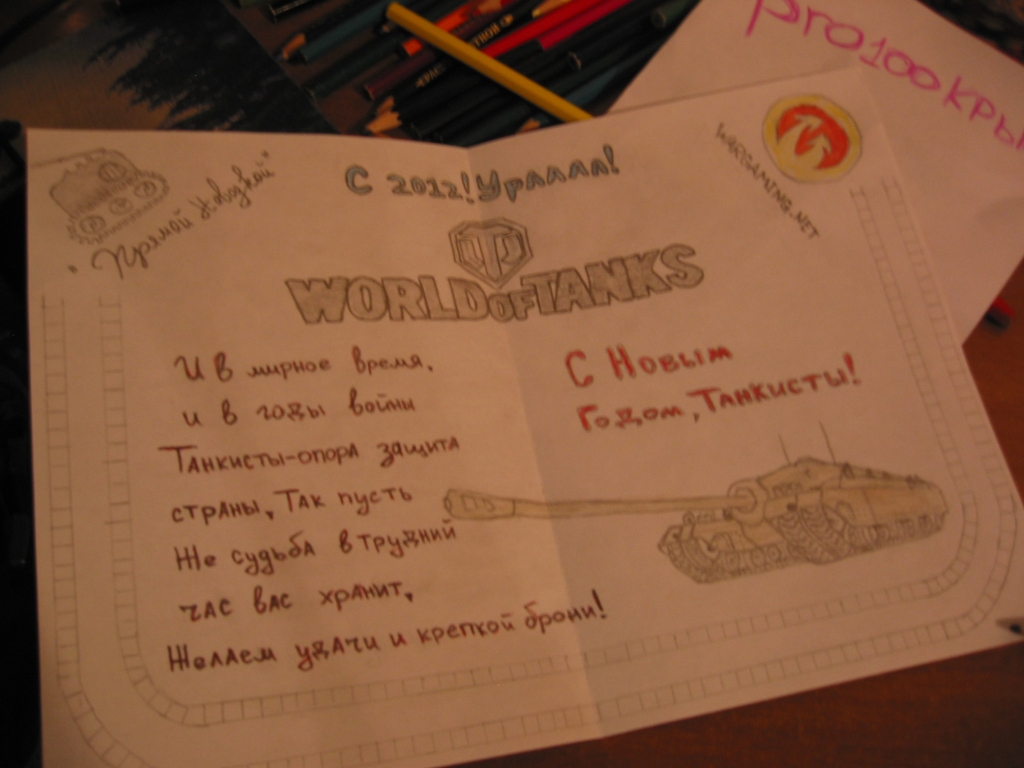 "Прямой Наводкой"
С 2012! Урааааа!
WARGAMING.NET
WORLD OF TANKS
И в мирное время,
и в годы войны
Танкисты-опора защита
страны, Так пусть
Же судьба в трудний
час вас хранит,
Желаем удачи и крепкой брони!
С Новым
Годом, Танкисты!
pro100кры